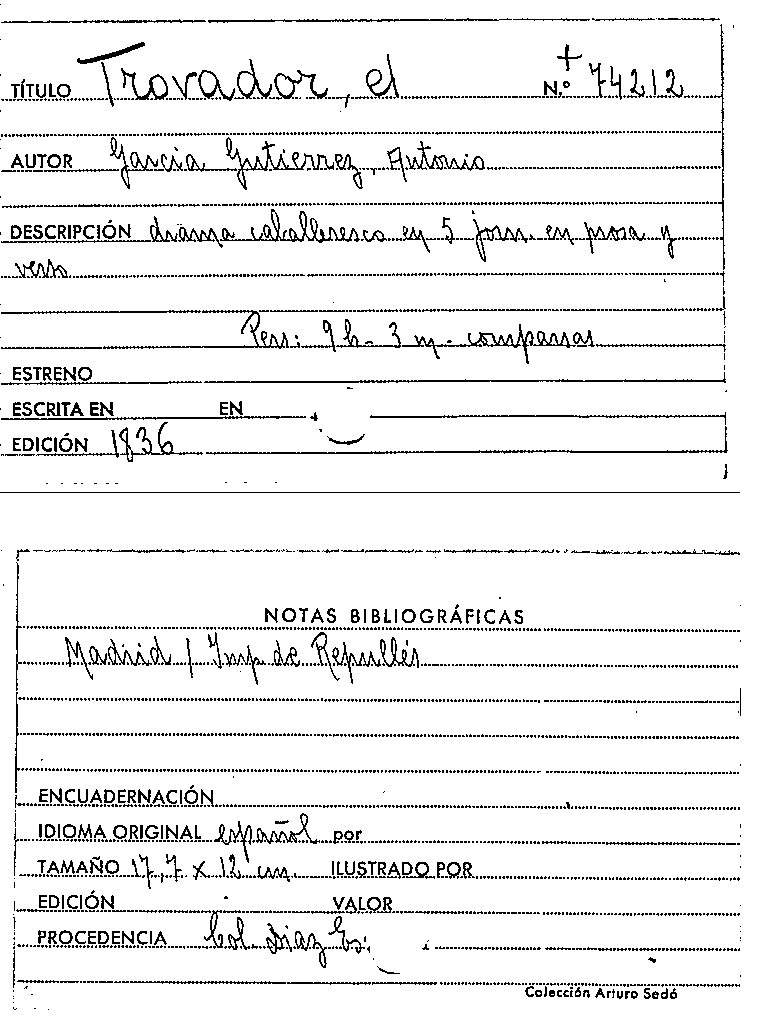 TÍTULO Trovador, el N.º + 74212
AUTOR García Gutierrez, Antonio
DESCRIPCIÓN drama caballeresco en 5 jorn. en prosa y
verso
Pers: 9 h - 3 m - comparsas
ESTRENO
ESCRITA EN EN
EDICIÓN 1836
NOTAS BIBLIOGRÁFICAS
Madrid / Imp. de Repullés
ENCUADERNACIÓN
IDIOMA ORIGINAL español por
TAMAÑO 17,7 x 12 cm. ILUSTRADO POR
EDICIÓN VALOR
PROCEDENCIA Col. Diaz Es:
Colección Arturo Sedó